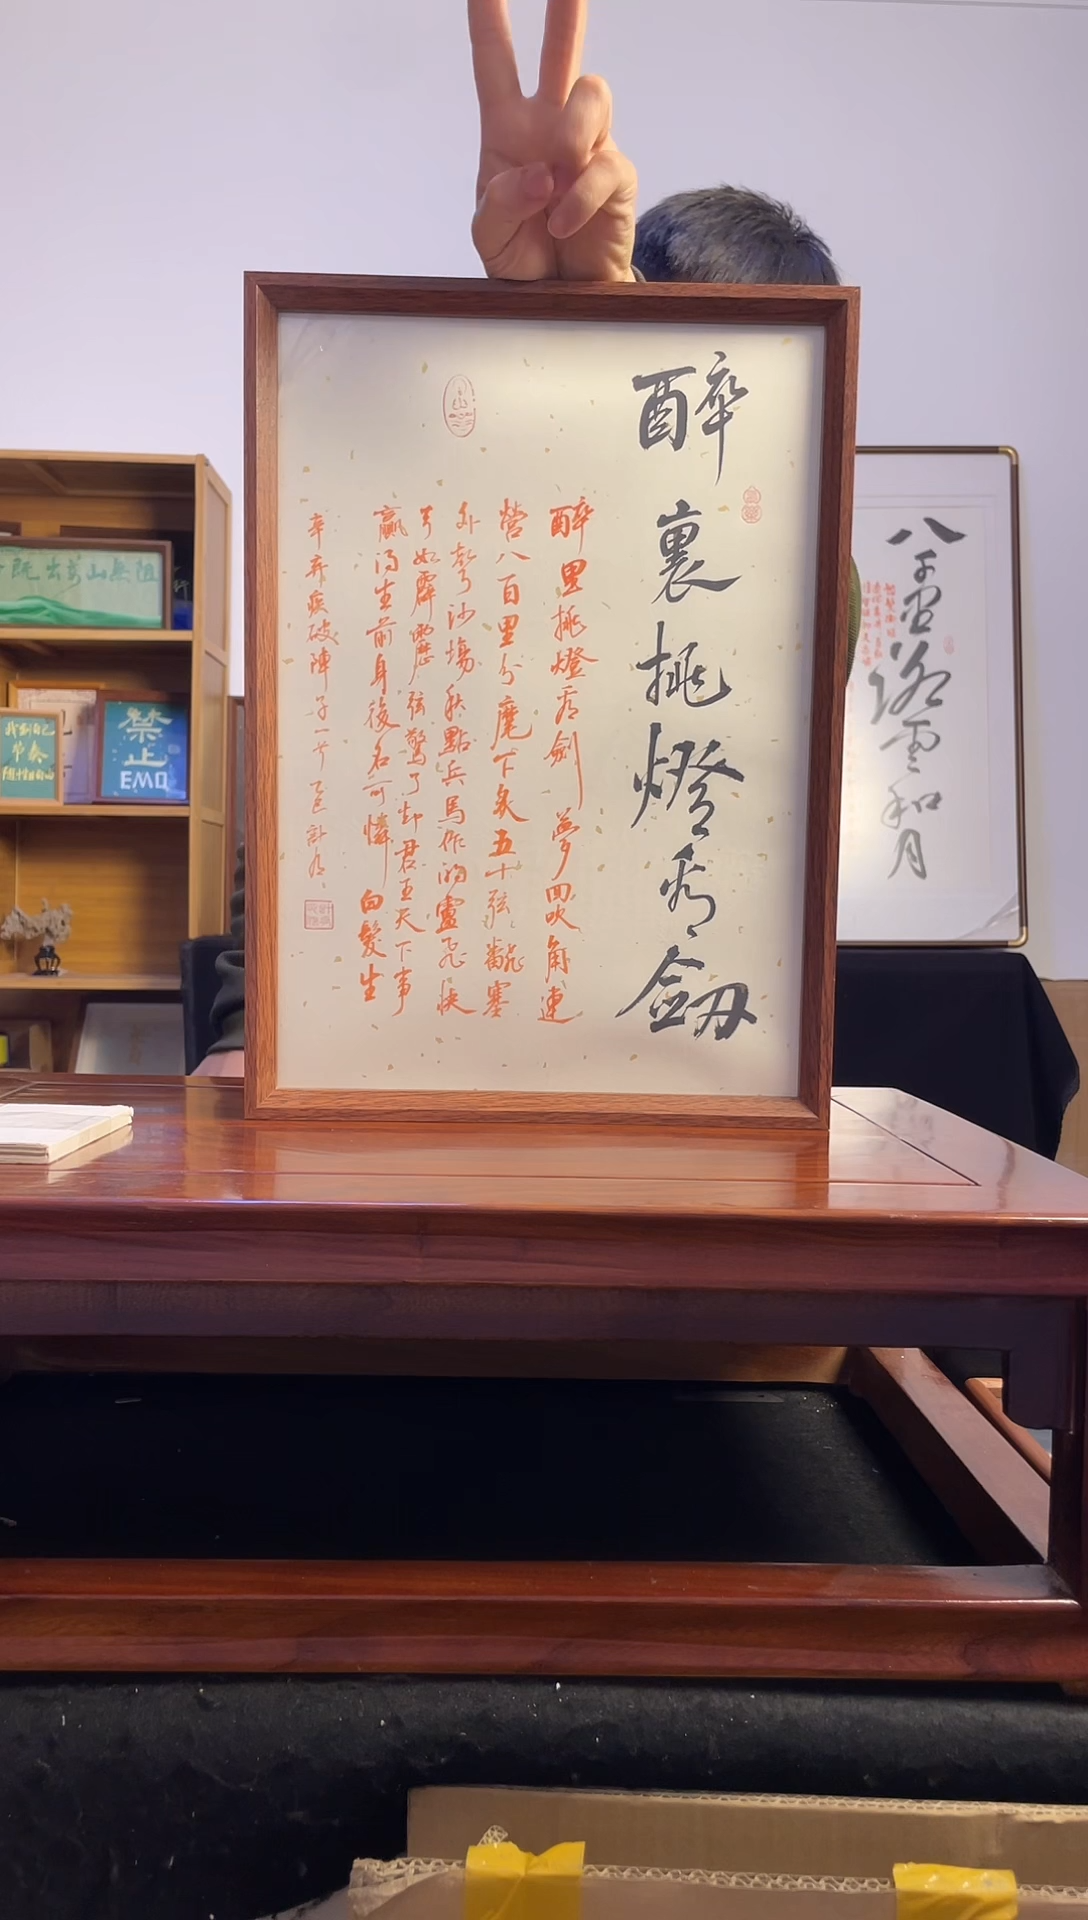 醉裏挑燈看劔
醉里挑燈看劍 夢回吹角連
營八百里分麾下炙五十弦飜塞
外聲沙場秋點兵馬作的盧飛快
弓如霹靂弦驚了却君王天下事
贏得生前身後名可憐 白髮生
辛弃疾破陣子一首
八千里路雲和月
山無阻
禁
止
EMO
自己
节奏